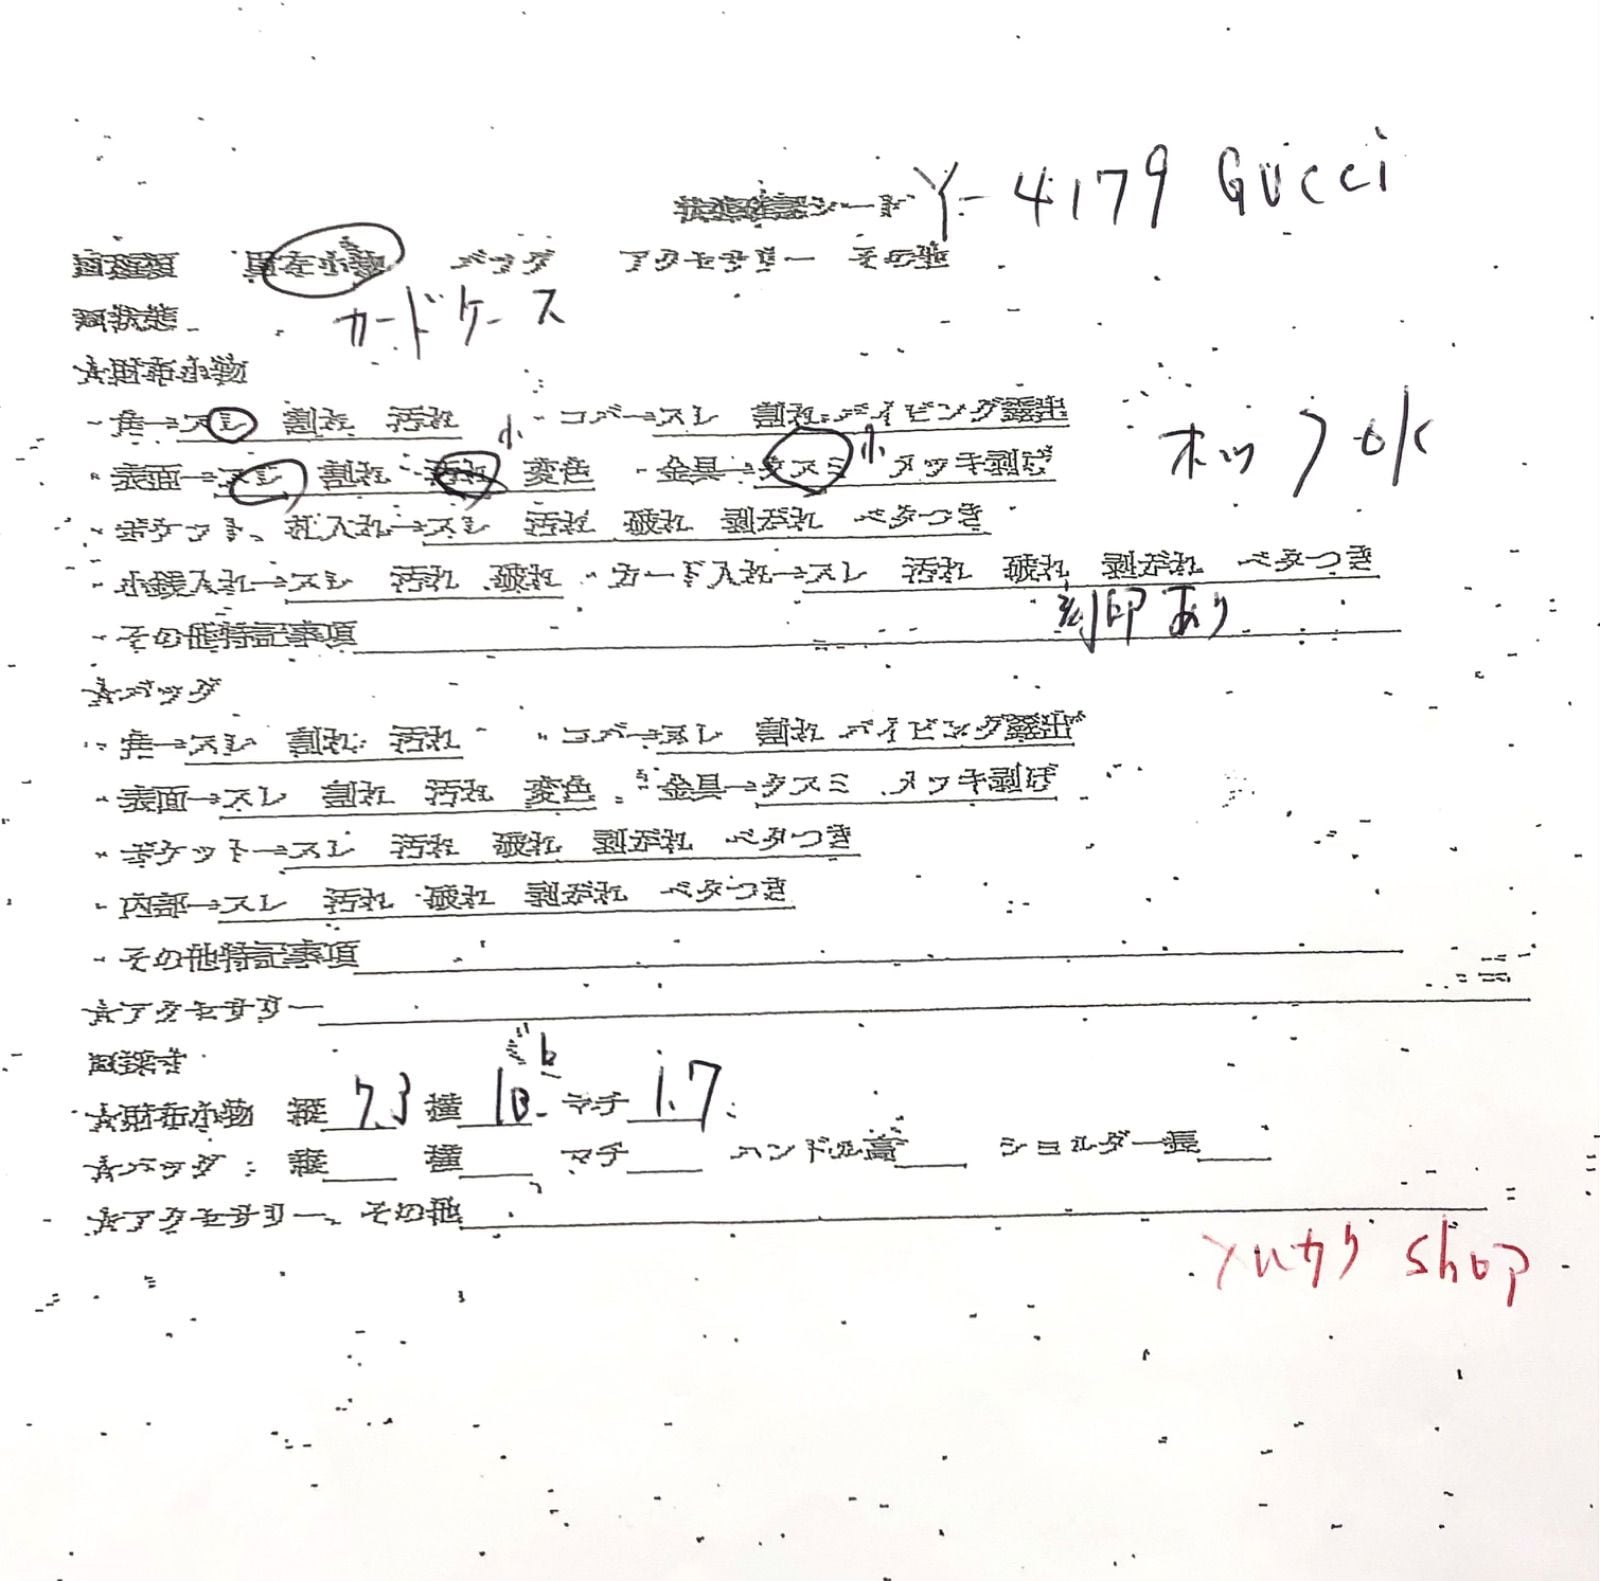 状態確認シート Y-4179 GUCCI
□種類 財布小物 バッグ アクセサリー その他
□状態 カードケース
☆財布小物
・角→スレ 割れ 汚れ ・コバ→スレ 割れ パイピング露出
・表面→スレ 割れ 汚れ 小 変色 ・金具→クスミ 小 メッキ剥げ ホック ok
・ポケット、札入れ→スレ 汚れ 破れ 剥がれ ベタつき
・小銭入れ→スレ 汚れ 破れ ・カード入れ→スレ 汚れ 破れ 剥がれ ベタつき
・その他特記事項 刻印あり
☆バッグ
・角→スレ 割れ 汚れ ・コバ→スレ 割れ パイピング露出
・表面→スレ 割れ 汚れ 変色 ・金具→クスミ メッキ剥げ
・ポケット→スレ 汚れ 破れ 剥がれ ベタつき
・内部→スレ 汚れ 破れ 剥がれ ベタつき
・その他特記事項
☆アクセサリー
□採寸
☆財布小物 縦 7.3 横 10. マチ 1.7
☆バッグ: 縦 横 マチ ハンドル高 ショルダー長
☆アクセサリー、その他
shop